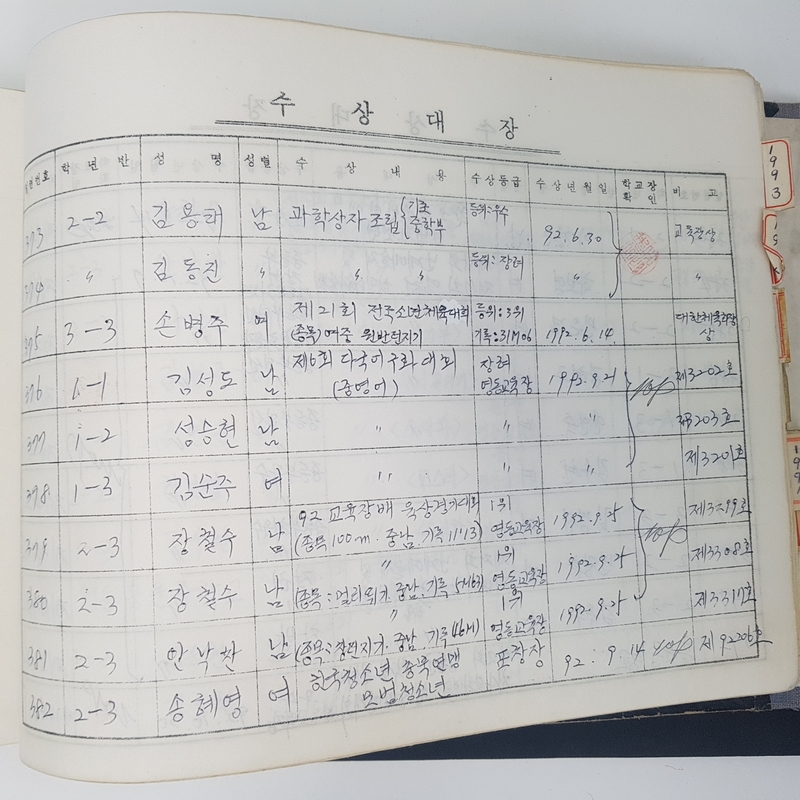 수 상 대 장
번호 학 년 반 성 명 성별 수 상 내 용 수상등급 수 상 년 월 일 학교장 확인 비 고
373 2-2 김용태 남 과학상자 조립 (기초 중학부 등위:우수 92.6.30 교육장상
374 〃 김동진 〃 〃 〃 등위:장려 〃 〃
375 3-3 손병주 여 제21회 전국소년체육대회 등위:3위 대한체육회장
(종목)여중 원반던지기 기록:31M06 1992.6.14 상
376 1-1 김성도 남 제6회 다국어구화대회 장려 1992.9.21 제3202호
(중영어) 영동교육장
377 1-2 성승현 남 〃 〃 〃 제3203호
378 1-3 김순주 여 〃 〃 〃 제3201호
379 2-3 장철수 남 92 교육장배 육상경기대회 1위 1992.9.25 제3299호
(종목 100m. 중남. 기록 11"13) 영동교육장
380 2-3 장철수 남 〃 1위 1992.9.25 제3308호
(종목:멀리뛰기. 중남. 기록 5M63) 영동교육장
381 2-3 안낙찬 남 〃 1위 1992.9.25 제3311호
(종목:창던지기. 중남. 기록 46M) 영동교육장
382 2-3 송혜영 여 한국청소년 총연맹 표창장 92.9.14 제92206호
모범청소년
1993